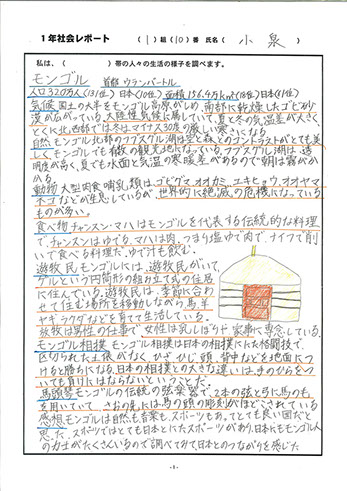 1年社会レポート （1）組（10）番 氏名（ 小 泉 ）
私は、（ ）帯の人々の生活の様子を調べます。
モンゴル 首都 ウランバートル
人口320万人(131位) 日本(10位) 面積156.4万km²(18位) 日本(61位)
気候 国土の大半をモンゴル高原がしめ、南部に乾燥したゴビ砂
漠が広がっている。大陸性気候に属していて、夏と冬の気温差が大きく、
とくに北西部では冬はマイナス30度の厳しい寒さになる
自然 モンゴル北部のフブスグル湖は空と森とのコントラストがとても美
しくモンゴルでも有数の観光地になっている。フブスグル湖は透
明度が高く、夏でも水面と気温の寒暖差があるので朝は霧がか
かる。
動物 大型肉食哺乳類は、ゴビグマ オオカミ ユキヒョウ、オオヤマ
ネコなどが生息しているが、世界的に絶滅の危機になっている
ものが多い。
食べ物 チャンスン・マハはモンゴルを代表する伝統的な料理
で、チャンスンはゆでる、マハは肉、つまり塩ゆで肉で、ナイフで削
いで食べる料理だ。ゆで汁も飲む。
遊牧民 モンゴルには、遊牧民がいて、
ゲルという円筒形の組み立て式の住居
に住んでいる。遊牧民は、季節に合わ
せて住む場所を移動しながら馬、羊
ヤギ ラクダなどを育てて生活している。
放牧は男性の仕事で 女性は乳しぼりや、家事に専念している。
モンゴル相撲 モンゴル相撲は日本の相撲ににた格闘技で、
区切られた土俵がなく ひざ ひじ 頭、背中などを地面につ
けると勝ちになる。日本の相撲との大きな違いは手のひらをつ
いても負けにはならないということだ。
馬頭琴 モンゴルの伝統の弦楽器で、2本の弦と弓に馬のしっぽ
を用いていて さおの先には馬の頭の彫刻がほどこされている
感想 モンゴルは自然も音楽も、スポーツもあってとても良い国だと
思った。スポーツではとても日本とにたスポーツがあり、日本にもモンゴル人
の力士がたくさんいるので調べてみて日本とのつながりを感じた
-1-